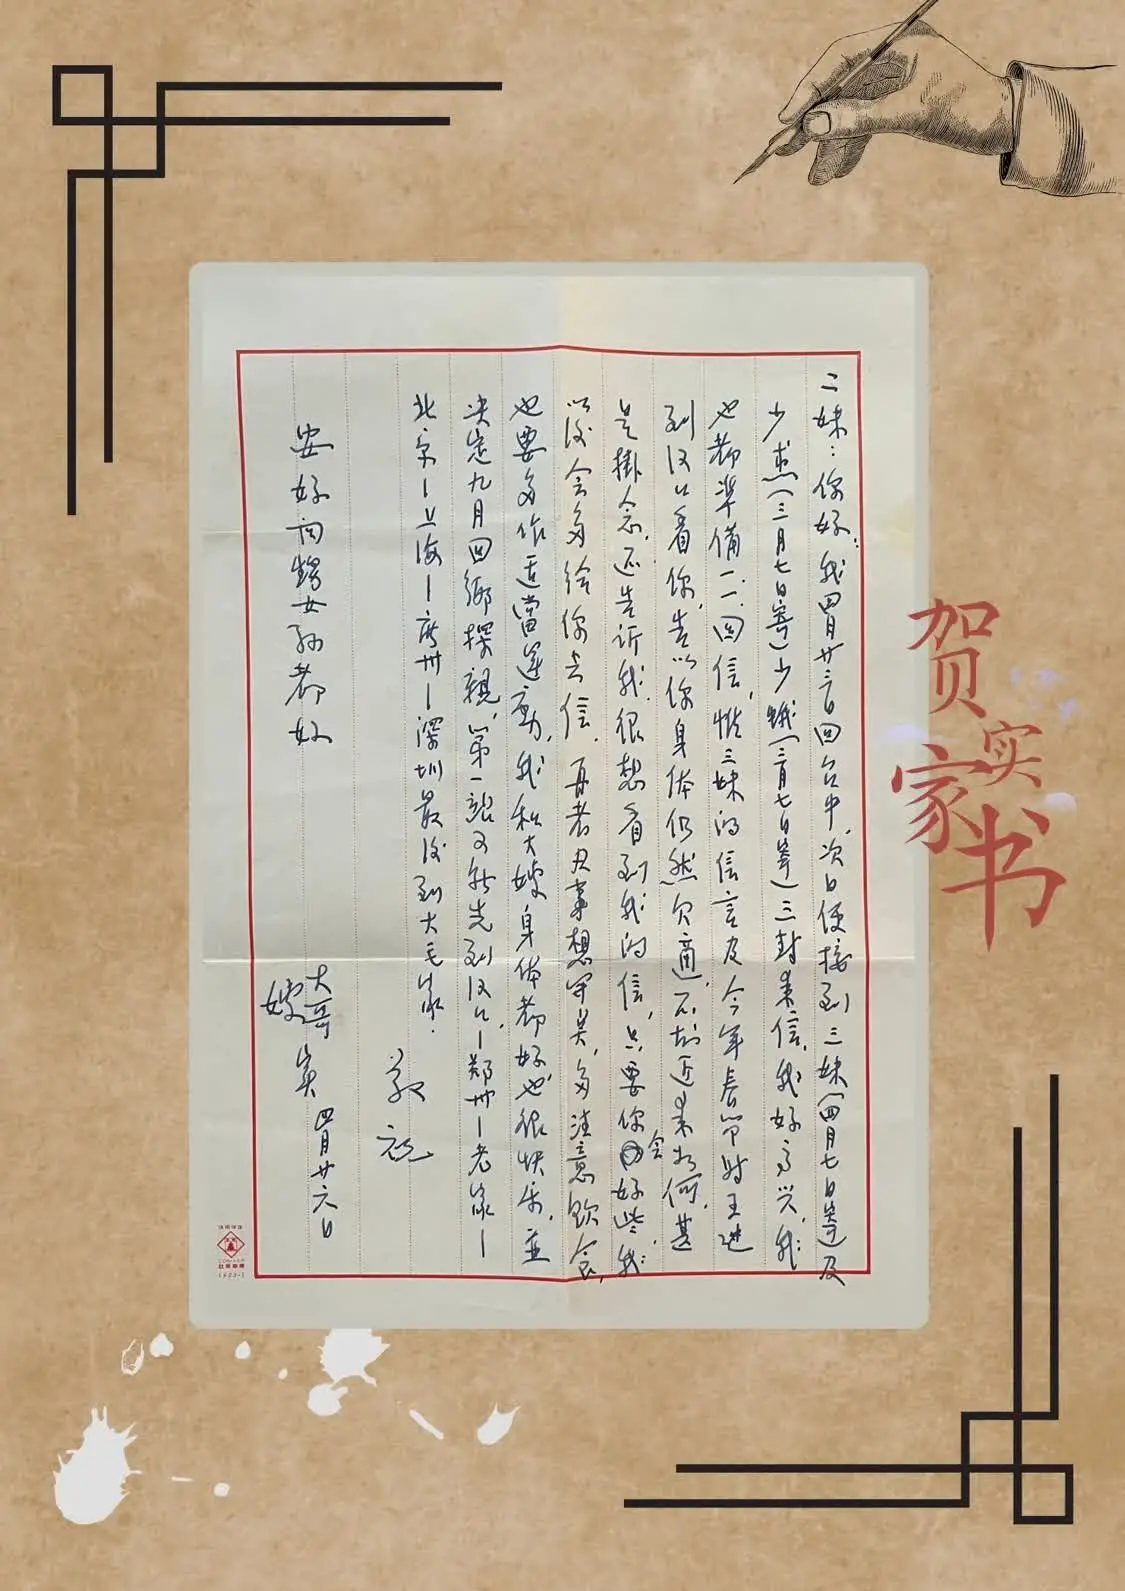 二妹：你好，我四月廿三日回台中，次日便接到三妹（四月七日寄）及
少杰（三月七日寄）少娥（三月七日寄）三封来信，我好高兴，我
也都準備一一回信，惟三妹的信言及今年春节时王进
到汉口看你，告以你身体仍然欠適，不知近来如何，甚
是掛念，还告诉我很想看到我的信，只要你会好些，我
以後会多给你去信，再者凡事想开点，多注意飲食，
也要多作适當运动，我和大嫂身体都好也很快乐，並
决定九月回鄉探親，第一站可能先到汉口—郑州—老家—
北京—上海—广州—深圳最後到大毛家．
敬祝
安好 问甥女孙都好
大哥 实
嫂
四月廿六日
贺实
家书